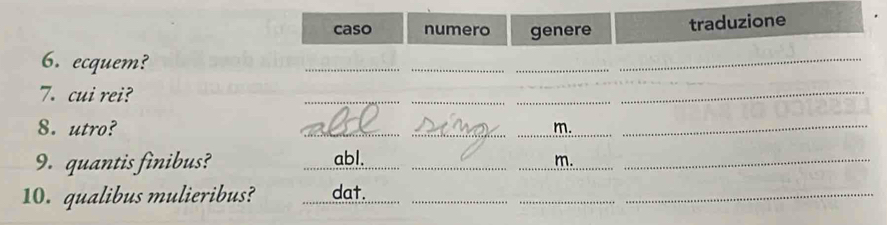 caso numero genere traduzione
6. ecquem?
7. cui rei?
8. utro? abl sing m.
9. quantis finibus? abl. m.
10. qualibus mulieribus? dat.